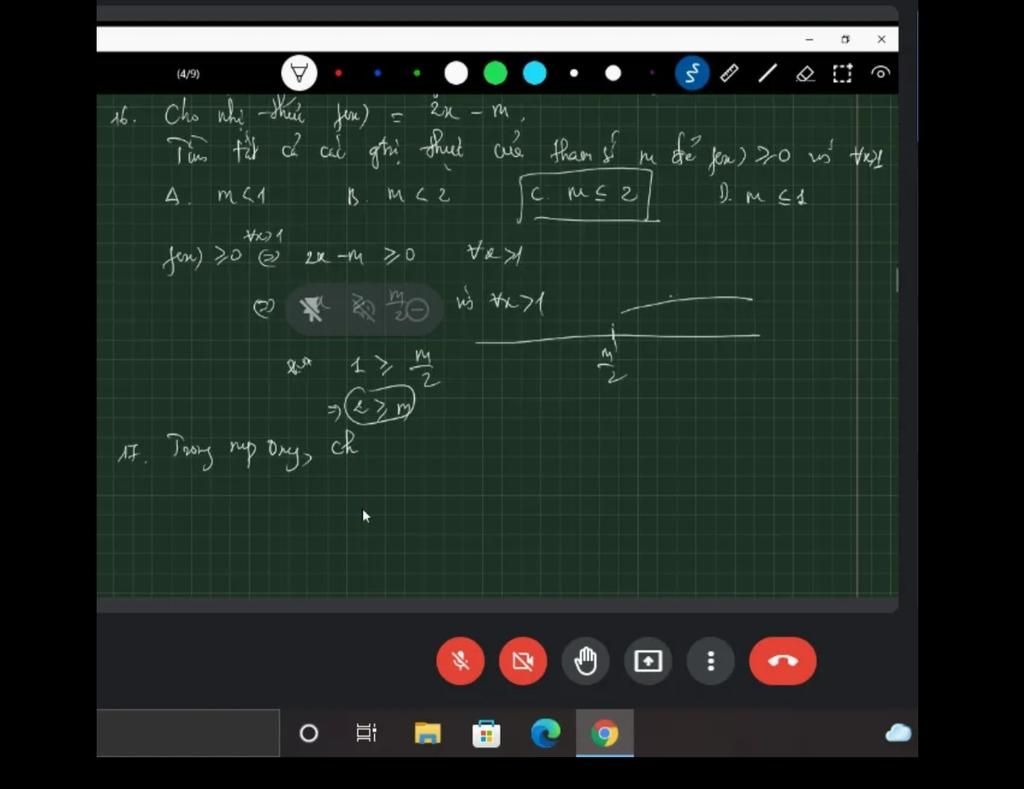 (4/9)
16. Cho nhị thức f(x) = 2x - m.
Tìm tất cả các gtrị thực của tham số m để f(x) ≥ 0 với ∀x>1
A. m < 1 B. m < 2 C. m ≤ 2 D. m ≤ 1
∀x>1
f(x) ≥ 0 ⇔ 2x - m ≥ 0 ∀x>1
⇔ x ≥ m/2 với ∀x>1
m/2
1 ≥ m/2
⇒ 2 ≥ m
17. Trong mp Oxy, ch